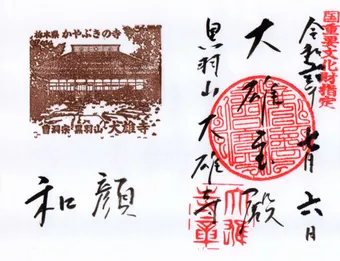 国重要文化財指定
令和 年 月六日
大雄宝殿
黒羽山大雄寺
栃木県 かやぶきの寺
曹洞宗・黒羽山・大雄寺
和顔